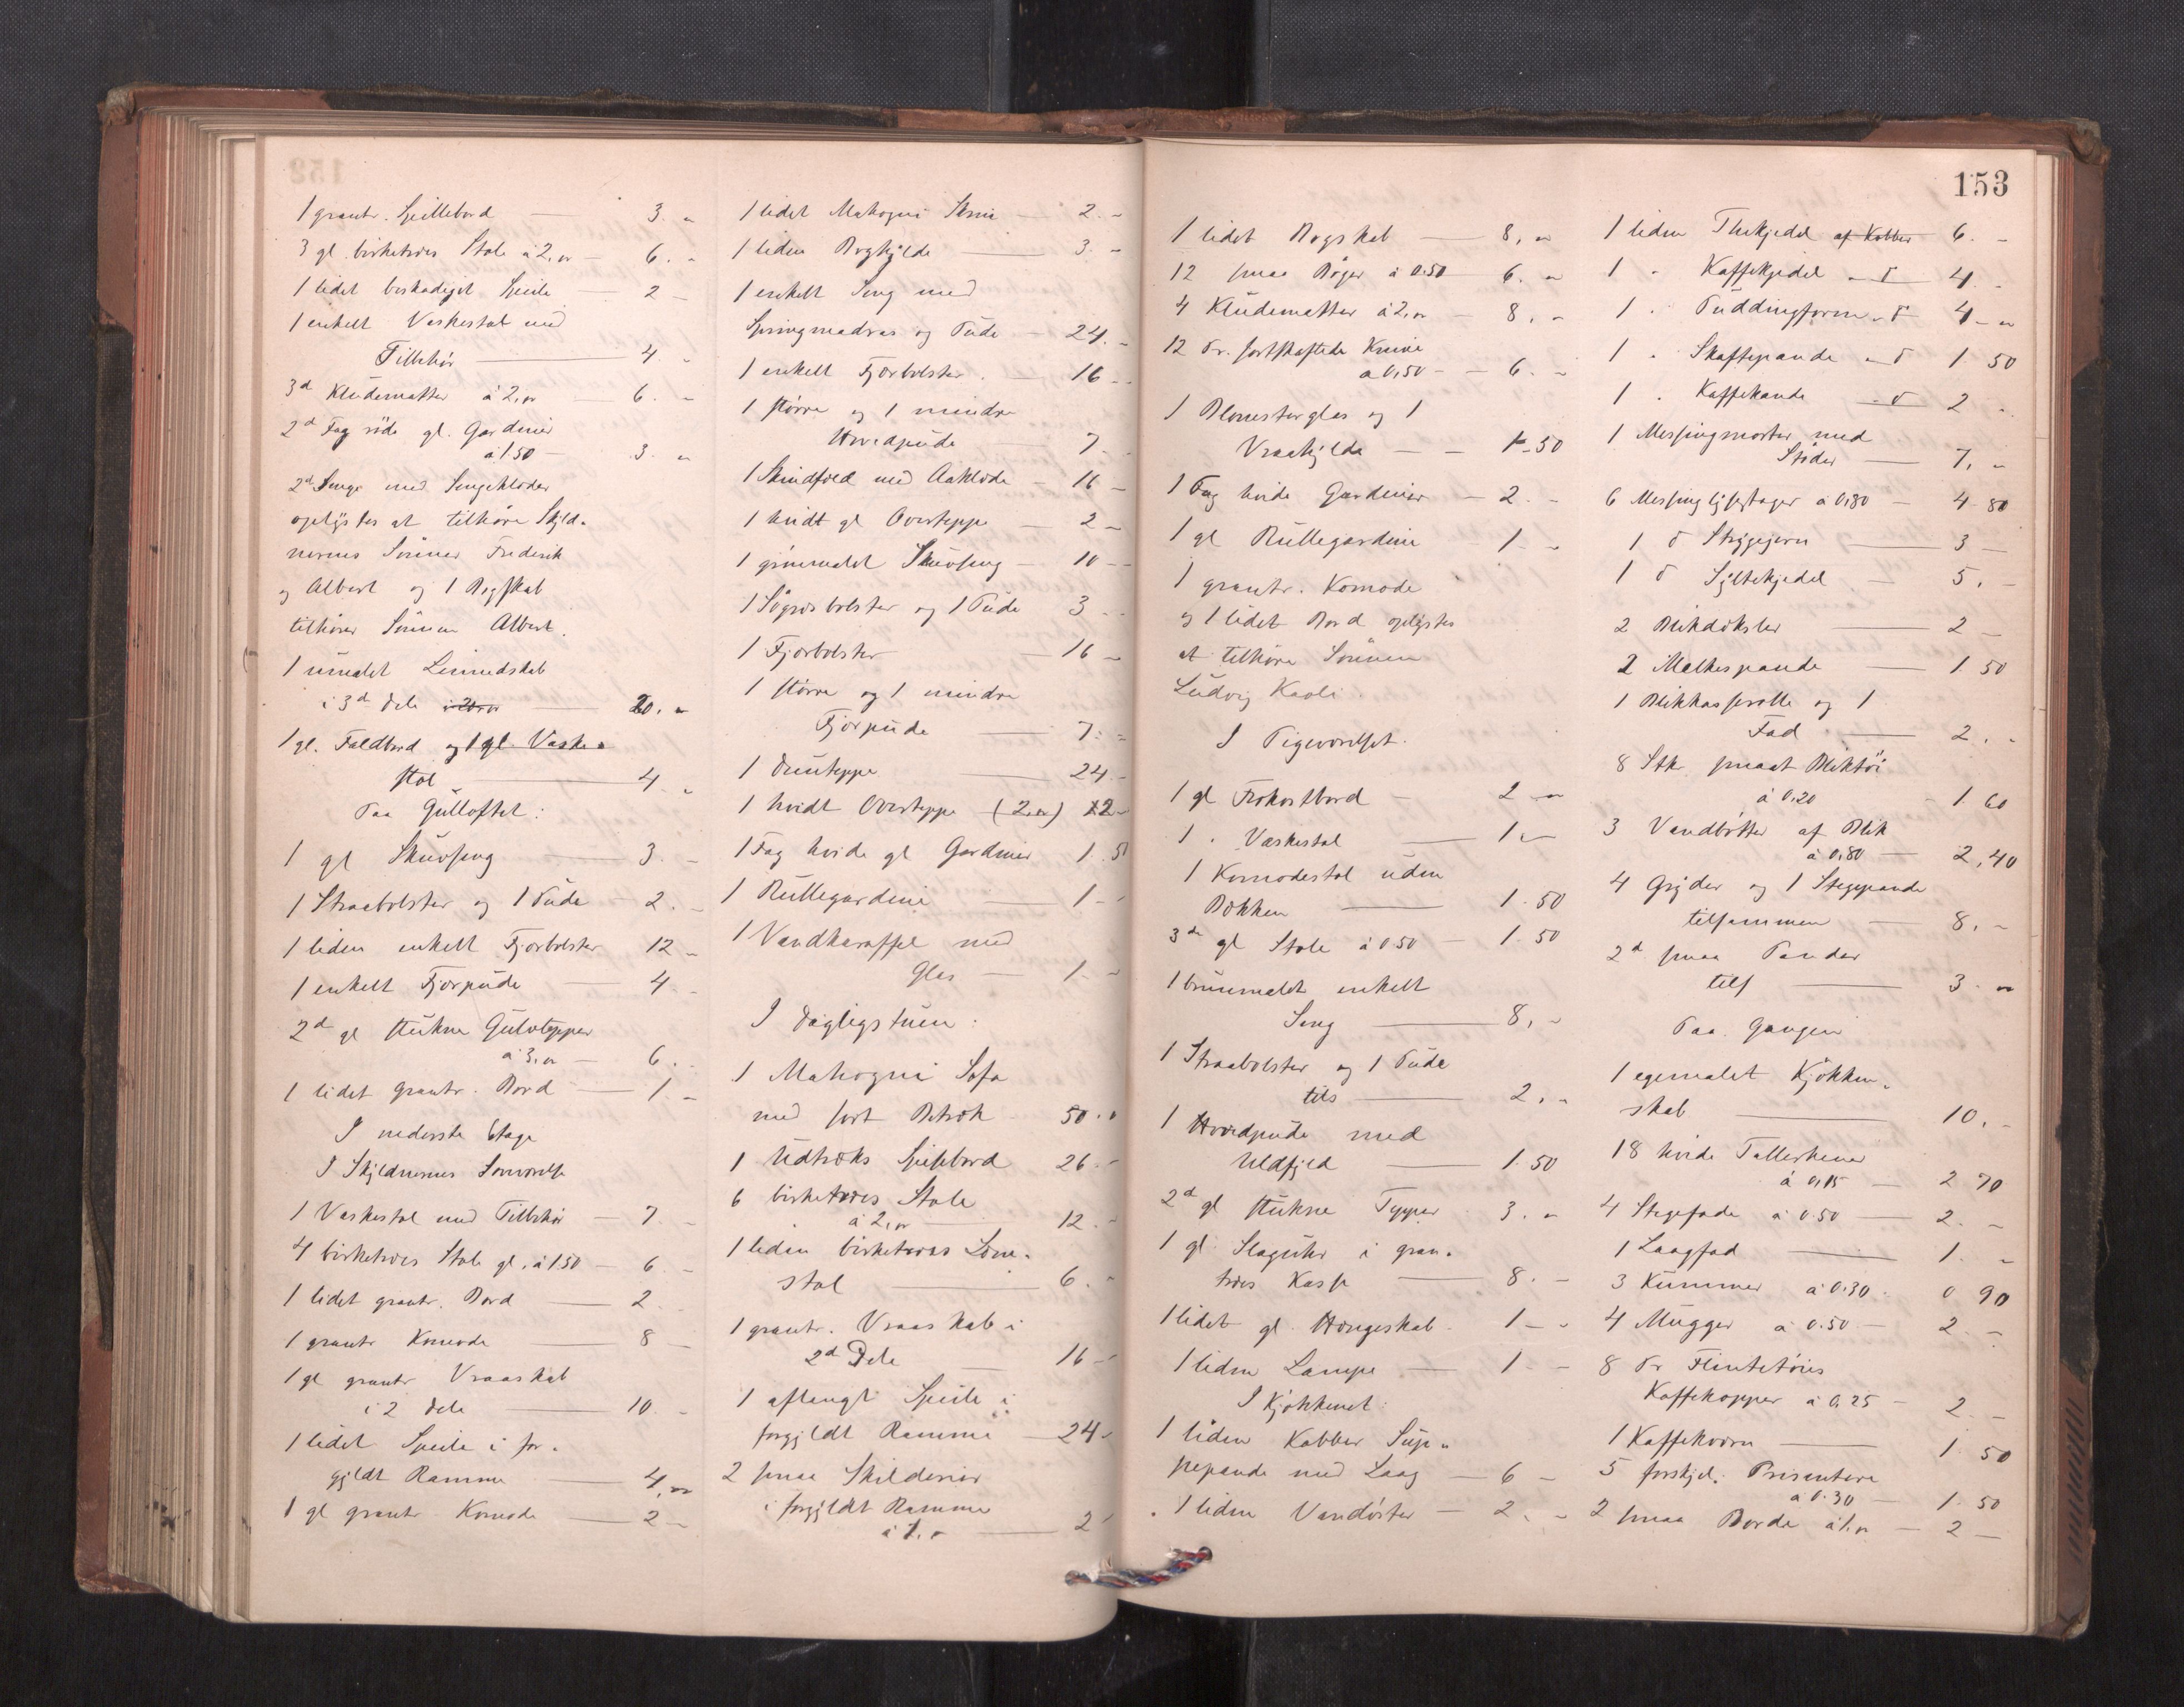 1 grantr. Spillebord — 3. "
3 gl. birketræs Stole à 2,00 — 6. "
1 lidet beskadiget Speile — 2 "
1 enkelt Vaskestol med
Tilbehör — 4. "
3d Kludematter à 2,00 — 6. "
2d Fag röde gl. Gardiner
à 1 50 — 3. "
2d Senge med Sengeklæder
oplystes at tilhöre Skyld-
nerens Sönner Frederik
og Albert og 1 Bogskab
tilhörer Sönnen Albert.
1 umalet Linnedskab
i 3d Dele — 20. "
1 gl. Foldbord og 1 gl. Vaske-
stol — 4 "
Paa Gulloftet:
1 gl Skuvseng — 3. "
1 Straabolster og 1 Pude — 2. "
1 liden enkelt Fjærbolster 12 "
1 enkelt Fjærpude — 4. "
2d gl strikne Gulvtepper
à 3,00 — 6. "
1 lidet grantr. Bord — 1 "
I nederste Etage
I Skyldnerens Soveværelse
1 Vaskestol med Tilbehör — 7. "
4 birketræs Stole gl. à 1 50 — 6 "
1 lidet grantr. Bord — 2 "
1 grantr Komode — 8 "
1 gl grantr Vraaskab
i 2 Dele — 10. "
1 lidet Speile i for-
gyldt Ramme — 4, "
1 gl grantr Komode — 2 "
1 lidet Mahogni Skrin — 2. "
1 liden Boghylde — 3. "
1 enkelt Seng med
Springmadras og Pude — 24. "
1 enkelt Fjærbolster. — 16 "
1 större og 1 mindre
Hovedpude — 7. "
1 Skindfeld med Aaklæde — 16 "
1 hvidt gl Overteppe — 2 "
1 grönmalet Skuvseng — 10 "
1 Sögræsbolster og 1 Pude 3 "
1 Fjærbolster — 16 "
1 större og 1 mindre
Fjærpude — 7. "
1 Duunteppe — 24. "
1 hvidt Overteppe (2,00) 12 "
1 Fag hvide gl Gardiner 1. 50
1 Rullegardine — 1 "
1 Vandkaraffel med
Glas — 1. "
I Dagligstuen:
1 Mahogni Sofa
med sort Betræk 50. "
1 Udtræks Spisebord 26. "
6 birketræs Stole
à 2,00 — 12. "
1 liden birketræs Læne-
stol — 6. "
1 grantr. Vraaskab i
2d Dele — 16 "
1 aflangt Speile i
forgyldt Ramme — 24 "
2 smaa Skilderier
i forgyldt Ramme
à 1. " — 2 "
153
1 lidet Bogskab — 8, "
12 smaa Böger à 0.50 6. "
4 Kludematter à 2,00 — 8, "
12 Pr. sortskaftede Knive
à 0,50 — 6. "
1 Blomsterglas og 1
Vraahylde — 1 50
1 Fag hvide Gardiner — 2. "
1 gl Rullegardine — 1 "
1 grantr. Komode
og 1 lidet Bord oplystes
at tilhöre Sönnen
Ludvig Karli.
I Pigeværelset.
1 gl Frokostbord — 2 "
1 " Vaskestol — 1. "
1 Komodestol uden
Bækken — 1. 50
3de gl Stole à 0 50 — 1. 50
1 brunmalet enkelt
Seng — 8, "
1 Straabolster og 1 Pude
tils — 2, "
1 Hovedpude med
Uldfyld — 1. 50
2d gl strikne Tepper 3. "
1 gl. Slaguhr i gran-
træs Kasse — 8. "
1 lidet gl. Hængeskab 1 "
1 liden Lampe — 1 "
I Kjökkenet:
1 liden Kobber Sup-
pepande med Laag — 6 "
1 liden Vandöster — 2. "
1 liden Thekjedel af Kobber 6. "
1 " Kaffekjedel " d 4. "
1 " Puddingform " d 4 "
1 " Skaftepande " d 1 50
1 " Kaffekande " d 2 "
1 Messingmorter med
Stöder — 7, "
6 Messinglysestager à 0,80 — 4 80
1 d Strygejern — 3 "
1 d Syltekjedel — 5, "
2 Blikdöksler — 2 "
2 Melkespande — 1 50
1 Blikkasserolle og 1
Fad — 2. "
8 Stk smaat Bliktöi
à 0,20 — 1. 60
3 Vandbötter af Blik
à 0,80 — 2,40
4 Gryder og 1 Stegepande
tilsammen — 8, "
2d smaa Pander
tils — 3. "
Paa Gangen
1 egemalet Kjökken-
skab — 10, "
18 hvide Tallerkener
à 0,15 — 2 70
4 Stegefade à 0.50 — 2. "
1 Laagfad — 1. "
3 Kummer à 0.30 0 90
4 Mugger à 0.50 — 2. "
8 Pr Flintetöies
Kaffekopper à 0,25 — 2. "
1 Kaffekværn — 1. 50
5 forskjel. Presentere
à 0.30 — 1. 50
2 smaa Borde à 1,00 — 2 "